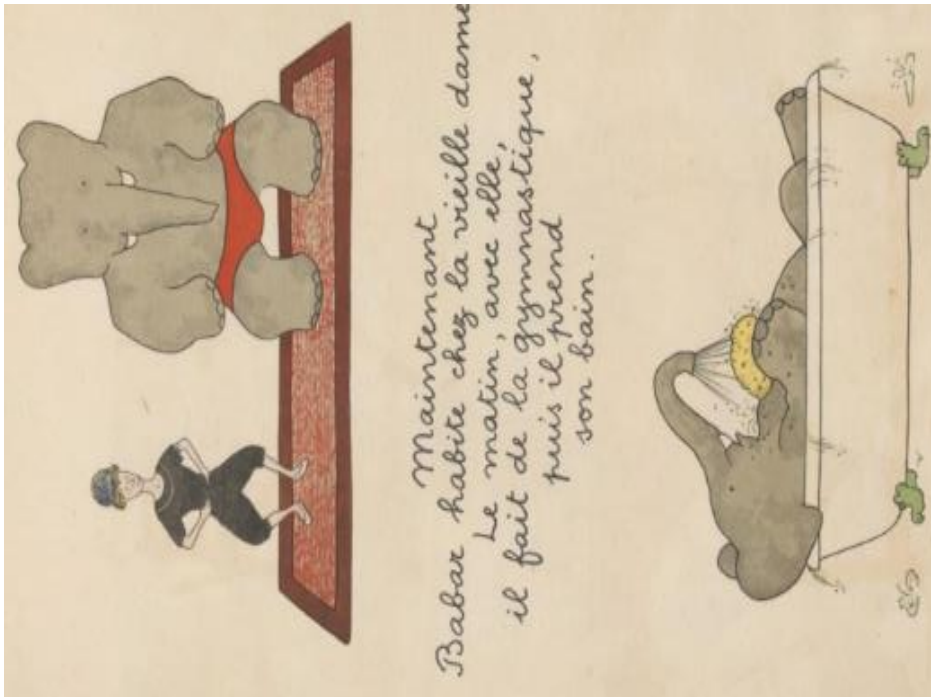 Maintenant
Babar habite chez la vieille dame
Le matin, avec elle,
il fait de la gymnastique,
puis il prend
son bain.